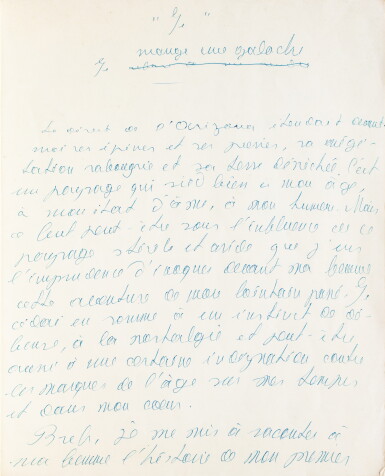 mange une galache
Le désert de l'Arizona étendait devant
moi ses épines et ses pierres, sa végé-
tation rabougrie et sa terre desséchée. C'est
un paysage qui sied bien à mon âge,
à mon état d'âme, à mon humeur. Mais
c'est peut-être sous l'influence de ce
paysage stérile et aride que j'eus
l'imprudence d'évoquer devant ma femme
cette aventure de mon lointain passé. J
cédai en somme à un instinct de dé-
fense, à la nostalgie et peut-être
aussi à une certaine indignation contre
les marques de l'âge sur mes tempes
et dans mon coeur.
Bref, je me mis à raconter à
ma femme l'histoire de mon premier